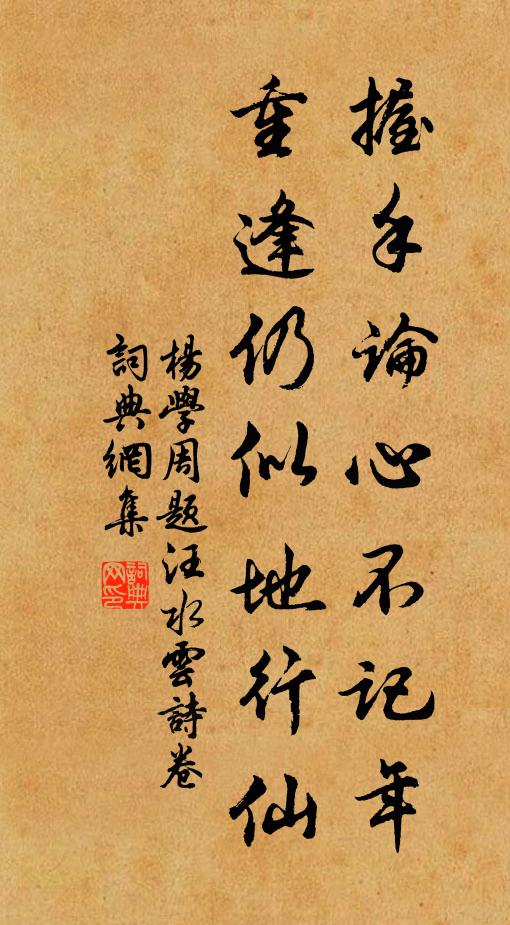 握手論心不記年
重逢仍似地行仙
楊學周題汪水雲詩卷
詞典網集
詞典網印